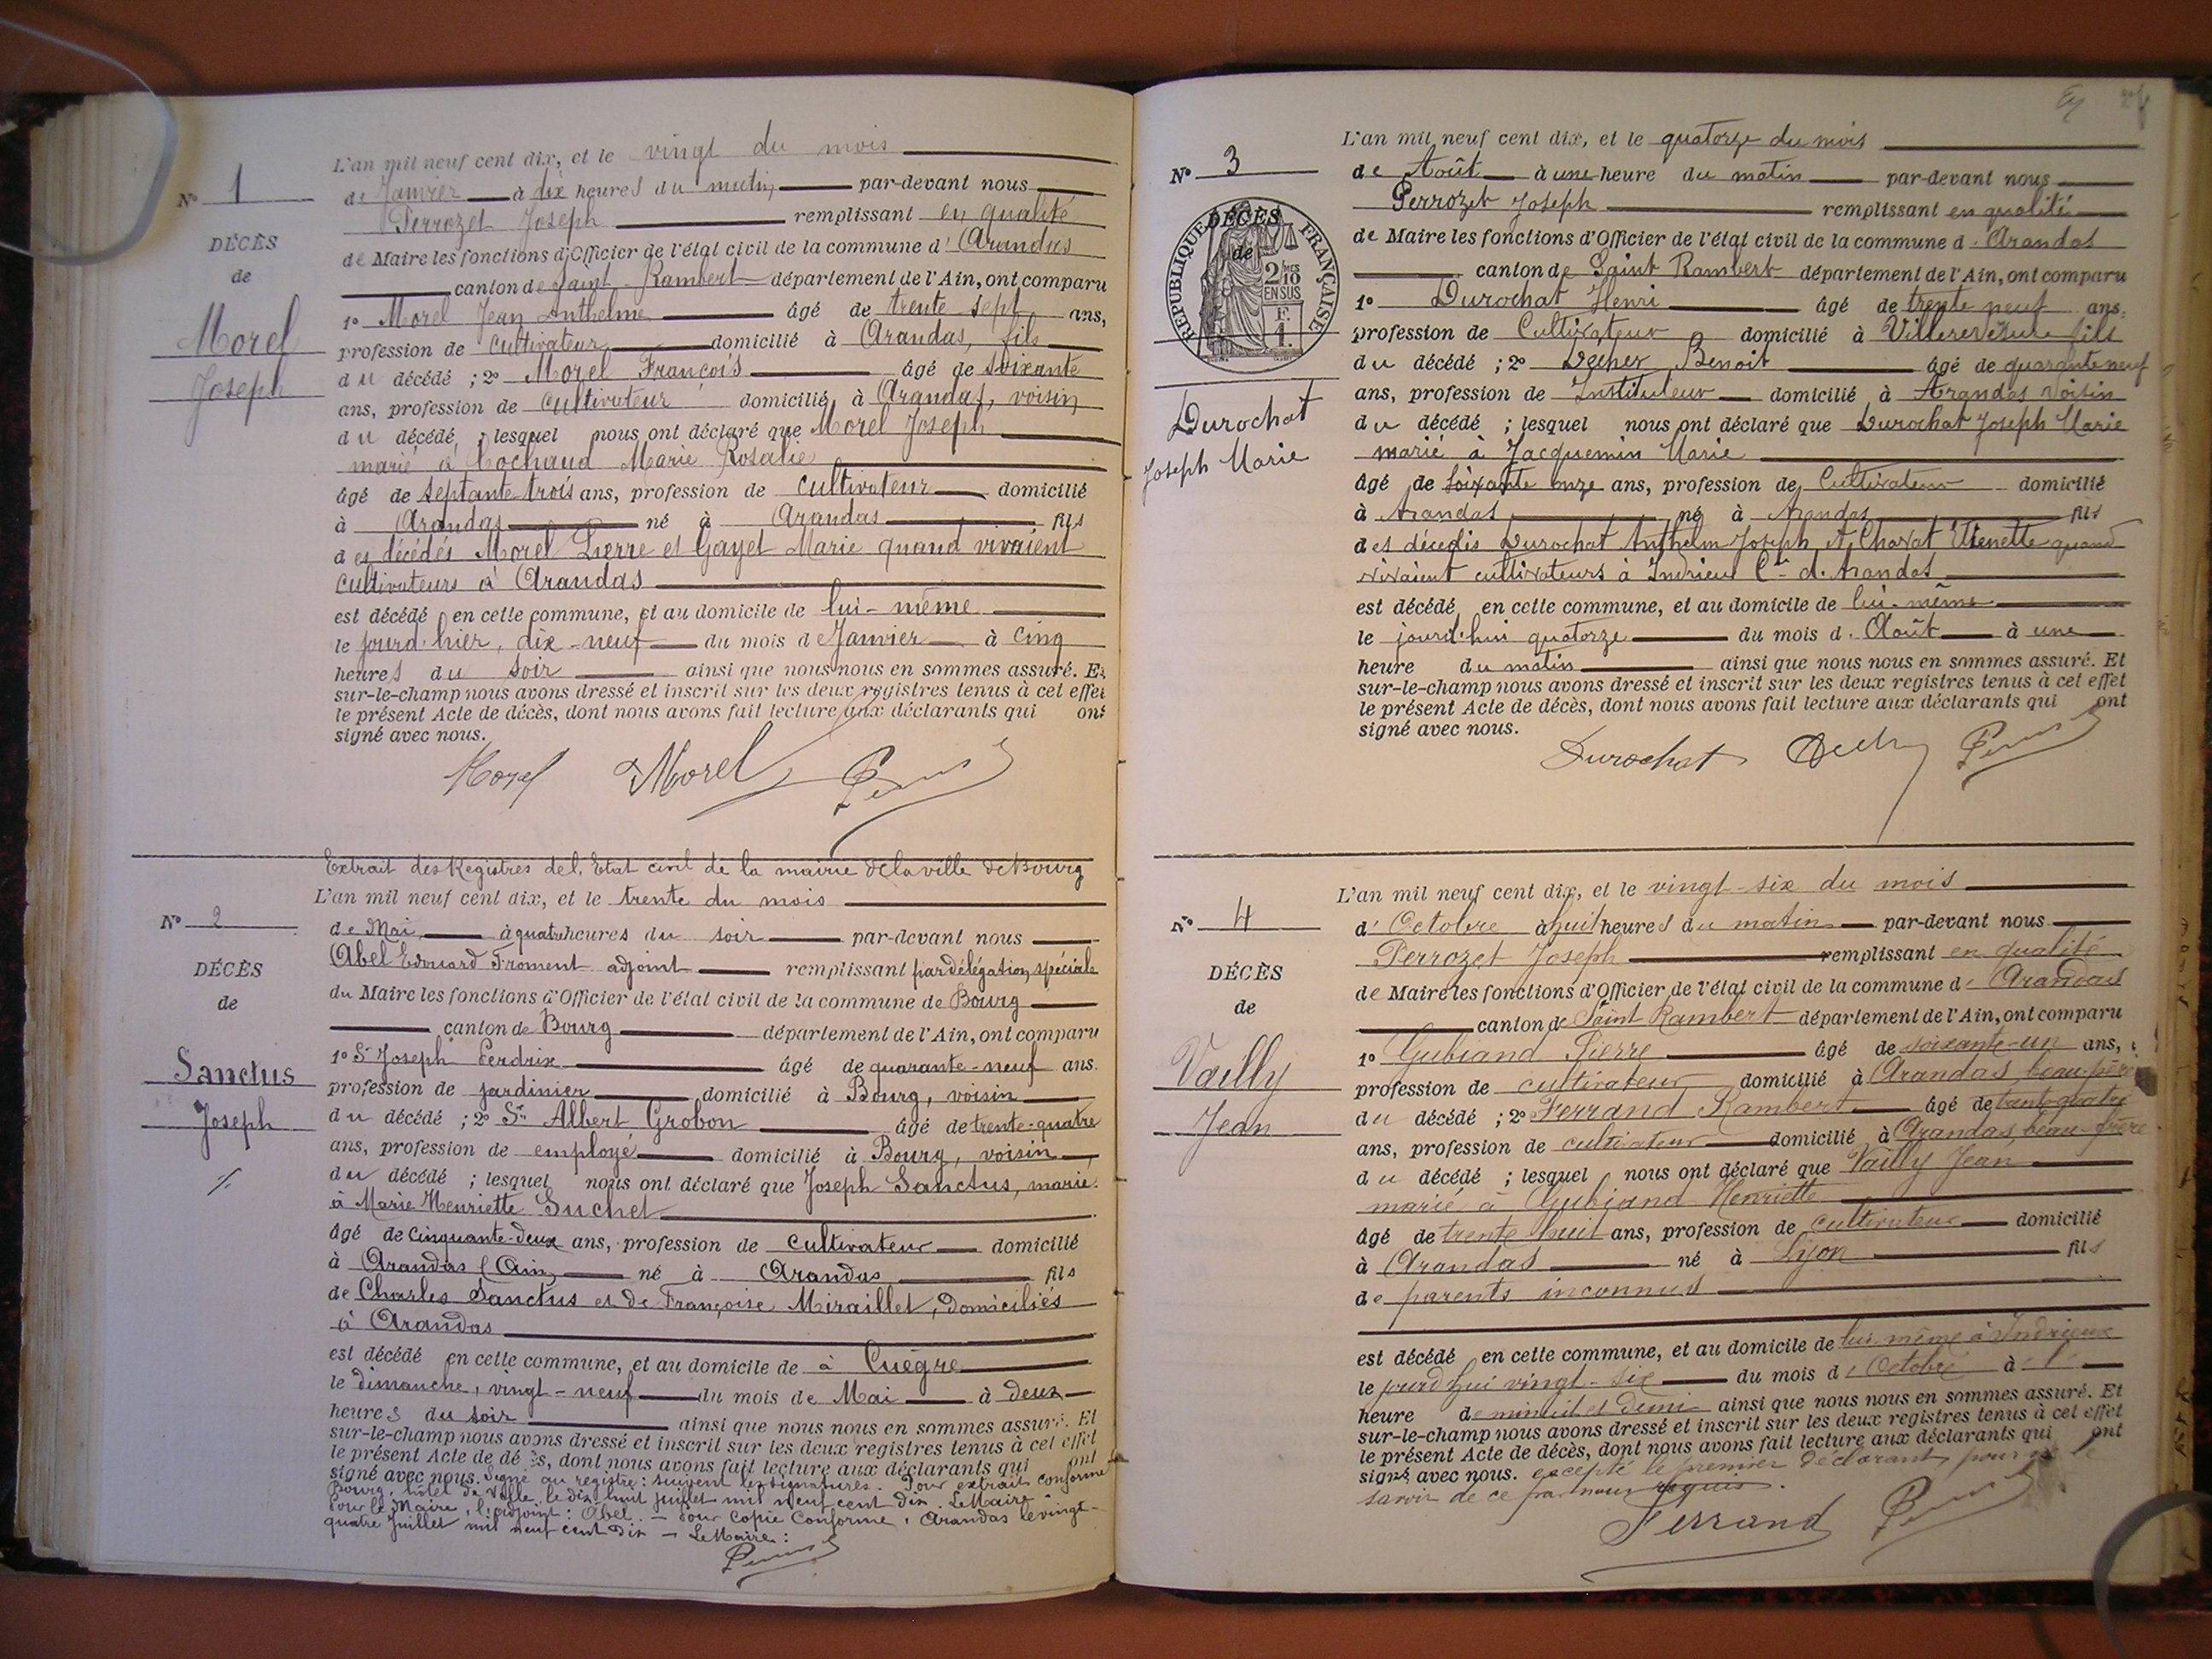 L'an mil neuf cent dix, et le vingt du mois
N° 1
de Janvier à dix heures du matin par-devant nous
Perrozet Joseph remplissant en qualité
DÉCÈS
de Maire les fonctions d'Officier de l'état civil de la commune d' Arandas
de
canton de Saint-Rambert département de l'Ain, ont comparu
1° Morel Jean Anthelme âgé de trente sept ans,
Morel
profession de cultivateur domicilié à Arandas, fils
Joseph
du décédé ; 2° Morel François âgé de soixante
ans, profession de cultivateur domicilié à Arandas, voisin
du décédé ; lesquel nous ont déclaré que Morel Joseph
marié à Cochaud Marie Rosalie
âgé de septante trois ans, profession de cultivateur domicilié
à Arandas né à Arandas fils
des décédés Morel Pierre et Gayet Marie quand vivaient
cultivateurs à Arandas
est décédé en cette commune, et au domicile de lui-même
le jourd'hier, dix-neuf du mois de Janvier à cinq
heures du soir ainsi que nous nous en sommes assuré. Et
sur-le-champ nous avons dressé et inscrit sur les deux registres tenus à cet effet
le présent Acte de décès, dont nous avons fait lecture aux déclarants qui ont
signé avec nous.
Morel Morel
Extrait des Registres de l'Etat civil de la mairie de la ville de Bourg
L'an mil neuf cent dix, et le trente du mois
N° 2
de Mai à quatre heures du soir par-devant nous
Abel Edouard Froment adjoint remplissant par délégation spéciale
DÉCÈS
du Maire les fonctions d'Officier de l'état civil de la commune de Bourg
de
canton de Bourg département de l'Ain, ont comparu
1° Sr Joseph Perdrix âgé de quarante-neuf ans.
Sanctus
profession de jardinier domicilié à Bourg, voisin
Joseph
du décédé ; 2° Sr Albert Grobon âgé de trente-quatre
ans, profession de employé domicilié à Bourg, voisin
du décédé ; lesquel nous ont déclaré que Joseph Sanctus, marié
à Marie Henriette Suchet
âgé de cinquante-deux ans, profession de cultivateur domicilié
à Arandas (Ain) né à Arandas fils
de Charles Sanctus et de Françoise Miraillet, domiciliés
à Arandas
est décédé en cette commune, et au domicile de à Cuègre
le dimanche, vingt-neuf du mois de Mai à deux
heures du soir ainsi que nous nous en sommes assuré. Et
sur-le-champ nous avons dressé et inscrit sur les deux registres tenus à cet effet
le présent Acte de décès, dont nous avons fait lecture aux déclarants qui ont
signé avec nous. Signé au registre : suivent les signatures. Pour extrait conforme
Bourg, hôtel de Ville le dix huit juillet mil neuf cent dix. Le Maire
Pour le Maire, l'adjoint : Abel. — Pour Copie Conforme, Arandas le vingt-
quatre Juillet mil neuf cent dix — Le Maire :
L'an mil neuf cent dix, et le quatorze du mois
N° 3
de Août à une heure du matin par-devant nous
Perrozet Joseph remplissant en qualité
DÉCÈS
de
RÉPUBLIQUE FRANÇAISE
2/10 EN SUS
de Maire les fonctions d'Officier de l'état civil de la commune d'Arandas
canton de Saint Rambert département de l'Ain, ont comparu
1° Durochat Henri âgé de trente neuf ans,
profession de Cultivateur domicilié à Villereversure fils
du décédé ; 2° Decher Benoit âgé de quarante neuf
ans, profession de Instituteur domicilié à Arandas voisin
Durochat
du décédé ; lesquel nous ont déclaré que Durochat Joseph Marie
Joseph Marie
marié à Jacquemin Marie
âgé de soixante onze ans, profession de Cultivateur domicilié
à Arandas né à Arandas fils
des décédés Durochat Anthelm Joseph et Chavat Etienette quand
vivaient cultivateurs à Indrieux Cne d'Arandas
est décédé en cette commune, et au domicile de lui-même
le jourd'hui quatorze du mois d'Août à une
heure du matin ainsi que nous nous en sommes assuré. Et
sur-le-champ nous avons dressé et inscrit sur les deux registres tenus à cet effet
le présent Acte de décès, dont nous avons fait lecture aux déclarants qui ont
signé avec nous.
Durochat
L'an mil neuf cent dix, et le vingt-six du mois
N° 4
d'Octobre à huit heures du matin par-devant nous
Perrozet Joseph remplissant en qualité
DÉCÈS
de Maire les fonctions d'Officier de l'état civil de la commune d'Arandas
de
canton de Saint Rambert département de l'Ain, ont comparu
1° Gubiand Pierre âgé de soixante-un ans,
Vailly
profession de cultivateur domicilié à Arandas, beau-père
Jean
du décédé ; 2° Ferrand Rambert âgé de trente-quatre
ans, profession de cultivateur domicilié à Arandas, beau-frère
du décédé ; lesquel nous ont déclaré que Vailly Jean
marié à Gubiand Henriette
âgé de trente huit ans, profession de cultivateur domicilié
à Arandas né à Lyon fils
de parents inconnus
est décédé en cette commune, et au domicile de lui-même à Indrieux
le jourd'hui vingt-six du mois d'Octobre à l'
heure de minuit et demi ainsi que nous nous en sommes assuré. Et
sur-le-champ nous avons dressé et inscrit sur les deux registres tenus à cet effet
le présent Acte de décès, dont nous avons fait lecture aux déclarants qui ont
signé avec nous. excepté le premier déclarant, pour ne le
savoir de ce par nous requis.
Ferrand